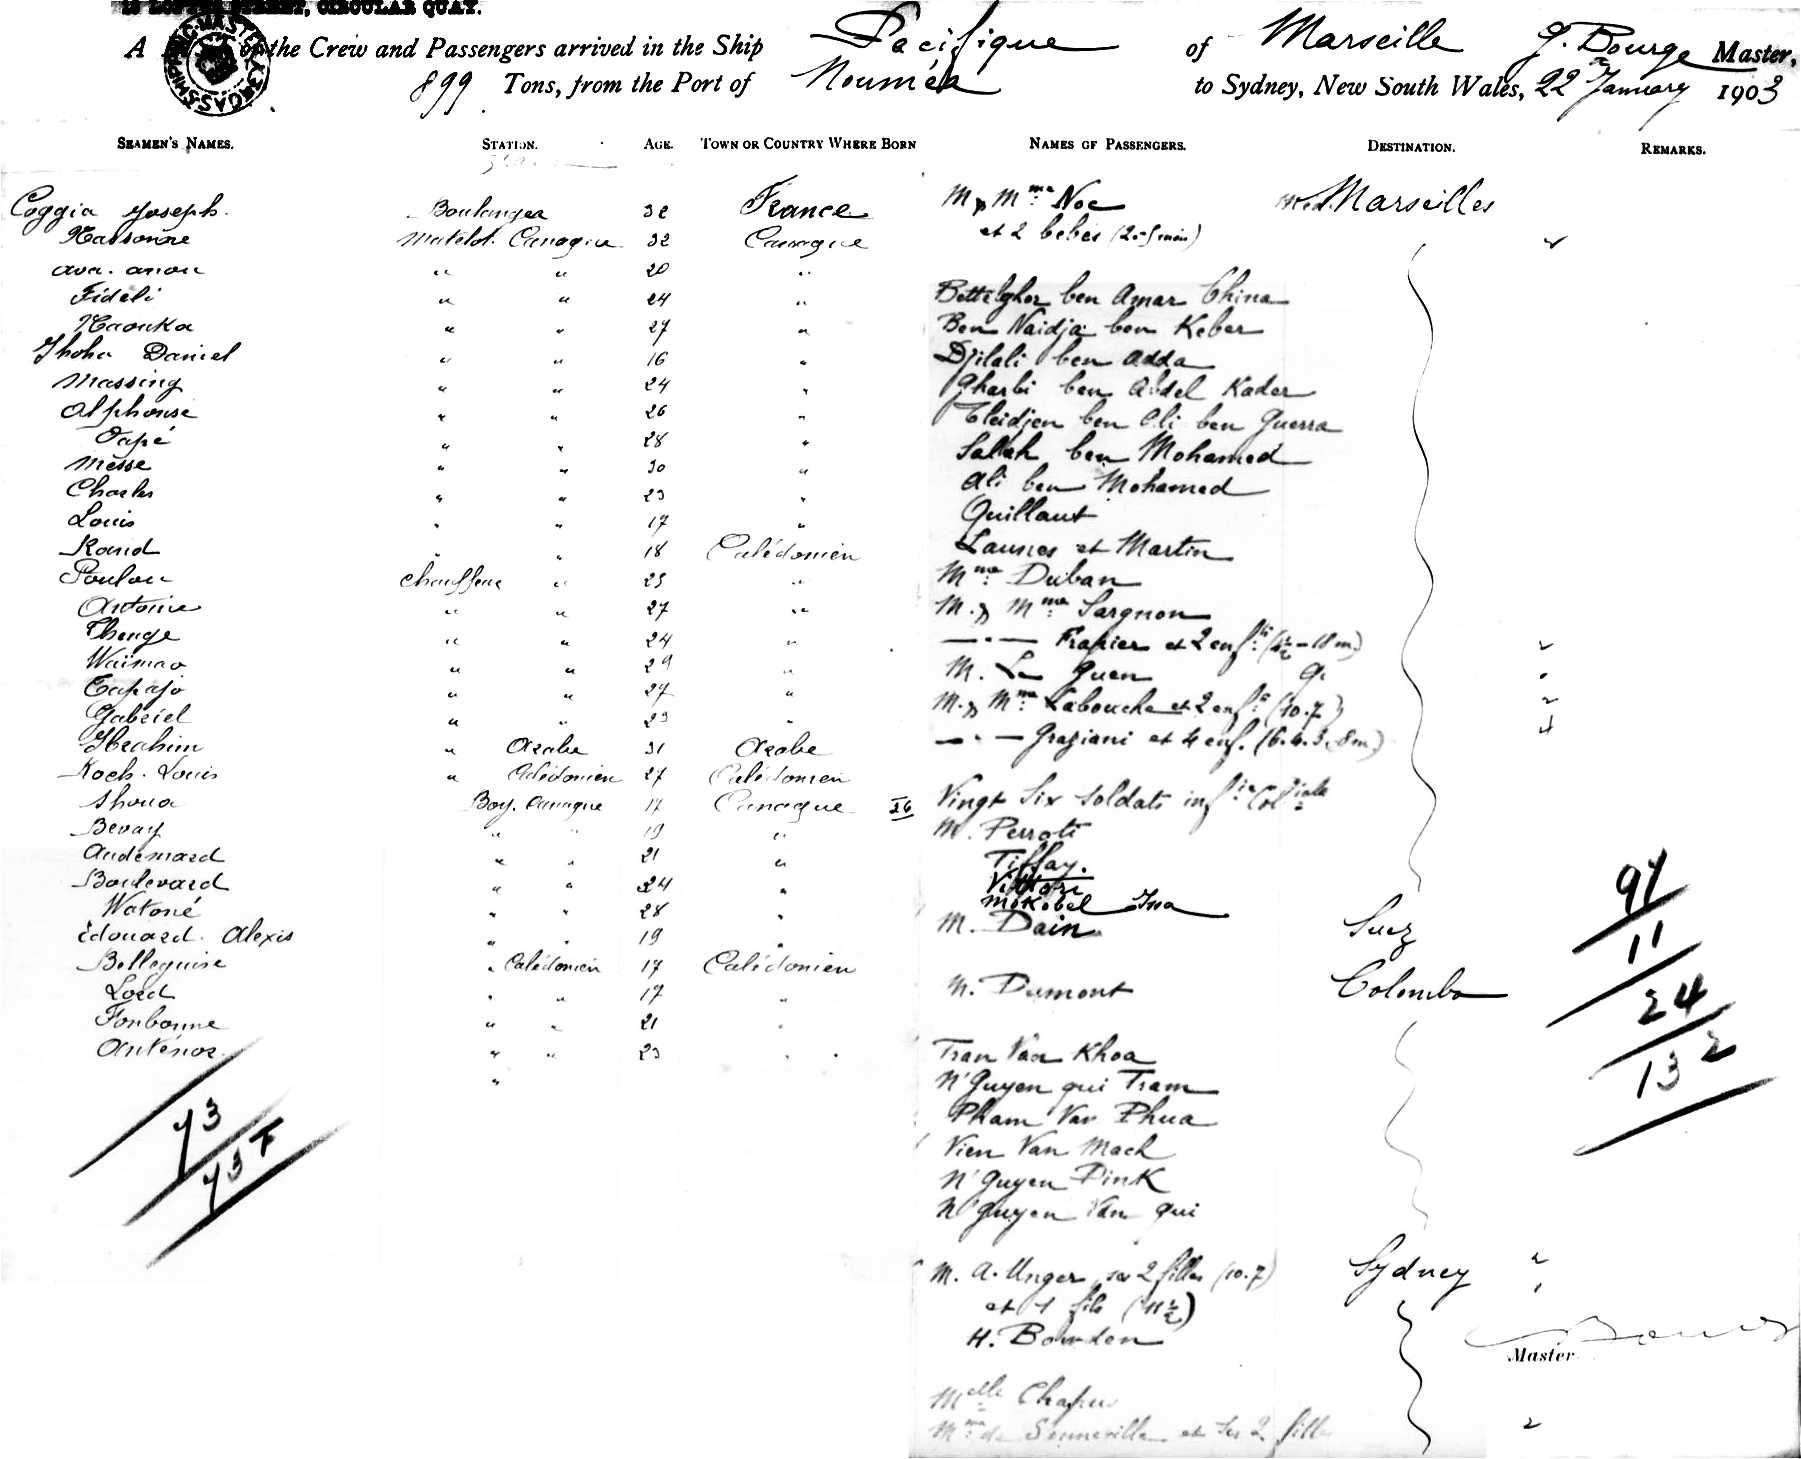 STREET, CIRCULAR QUAY.
A of the Crew and Passengers arrived in the Ship Pacifique of Marseille G. Bourge Master,
899 Tons, from the Port of Nouméa to Sydney, New South Wales, 22 January 1903
SEAMEN'S NAMES. STATION. AGE. TOWN OR COUNTRY WHERE BORN NAMES OF PASSENGERS. DESTINATION. REMARKS.
Coggia Joseph. Boulanger 32 France
Matelot. Canaque 32 Canaque
" " 20 "
Fideli " " 24 "
Naouka " " 27 "
Daniel " " 16 "
Massing " " 24 "
Alphonse " " 26 "
Oapé " " 28 "
Messe " " 30 "
Charles " " 23 "
Louis " " 17 "
" 18 Calédonien
Poulou Chauffeur " 23 "
Antoine " " 27 "
Thenge " " 24 "
Waimao " " 29 "
Tapajo " " 27 "
Gabriel " " 23 "
Ibrahim " Arabe 31 Arabe
Koch. Louis " Calédonien 27 Calédonien
Boy. Canaque 17 Canaque
Bevay " " 19 "
Audemard " " 21 "
Boulevard " " 24 "
Watoné " " 28 "
Edouard. Alexis " " 19 "
Belleguise " Calédonien 17 Calédonien
Lord " " 17 "
Fonbonne " " 21 "
Anténor. " " 23 "
"
73
73 F
M & Mme Noe Marseilles
et 2 bebés
ben Amar China
Ben Naidja ben Keber
Djilali ben Adda
Gharbi ben Abdel Kader
Cleidjen ben Ali ben Guerra
Salah ben Mohamed
Ali ben Mohamed
Quillaut
Launes et Martin
Mme Duban
M. & Mme Sargnon
— " — Frapier et 2 enfts
M. Le Guen
M. & Mme Labouche et 2 enfts (10.7)
— " — Graziani et 4 enf. (6.4.3.8m)
26 Vingt Six soldats infie Coliale
M. Perroti
Tiffay.
Vittori
Mokobel Issa
M. Dain Suez
M. Dumont Colombo
Tran Van Khoa
N'Guyen qui Tram
Pham Van Phua
Vien Van Mach
N'Guyen Dink
N'Guyen Van qui
M. A. Unger ses 2 filles (10.7) Sydney
et 1 fils (11½)
H. Bowden
Melle Chapu
Mme de Senneville et ses 2 filles
97
11
24
132
Master